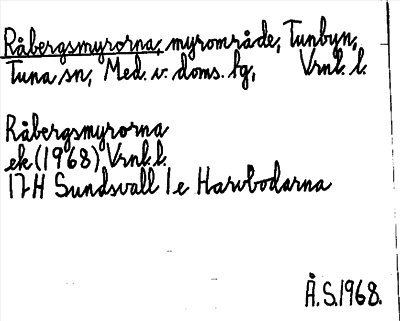 Råbergsmyrorna, myrområde, Tunbyn,
Tuna sn, Med. v. doms. tg, Vrnl. l.
Råbergsmyrorna
ek (1968) Vrnl. l.
17H Sundsvall 1e Harvbodarna
Å.S.1968.